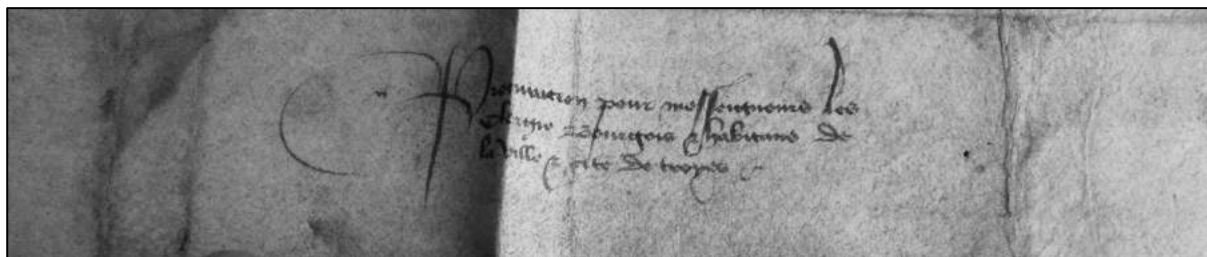 Procuration pour messeigneurs les
Clergie Bourgois & habitans de
la ville & cité de troyes